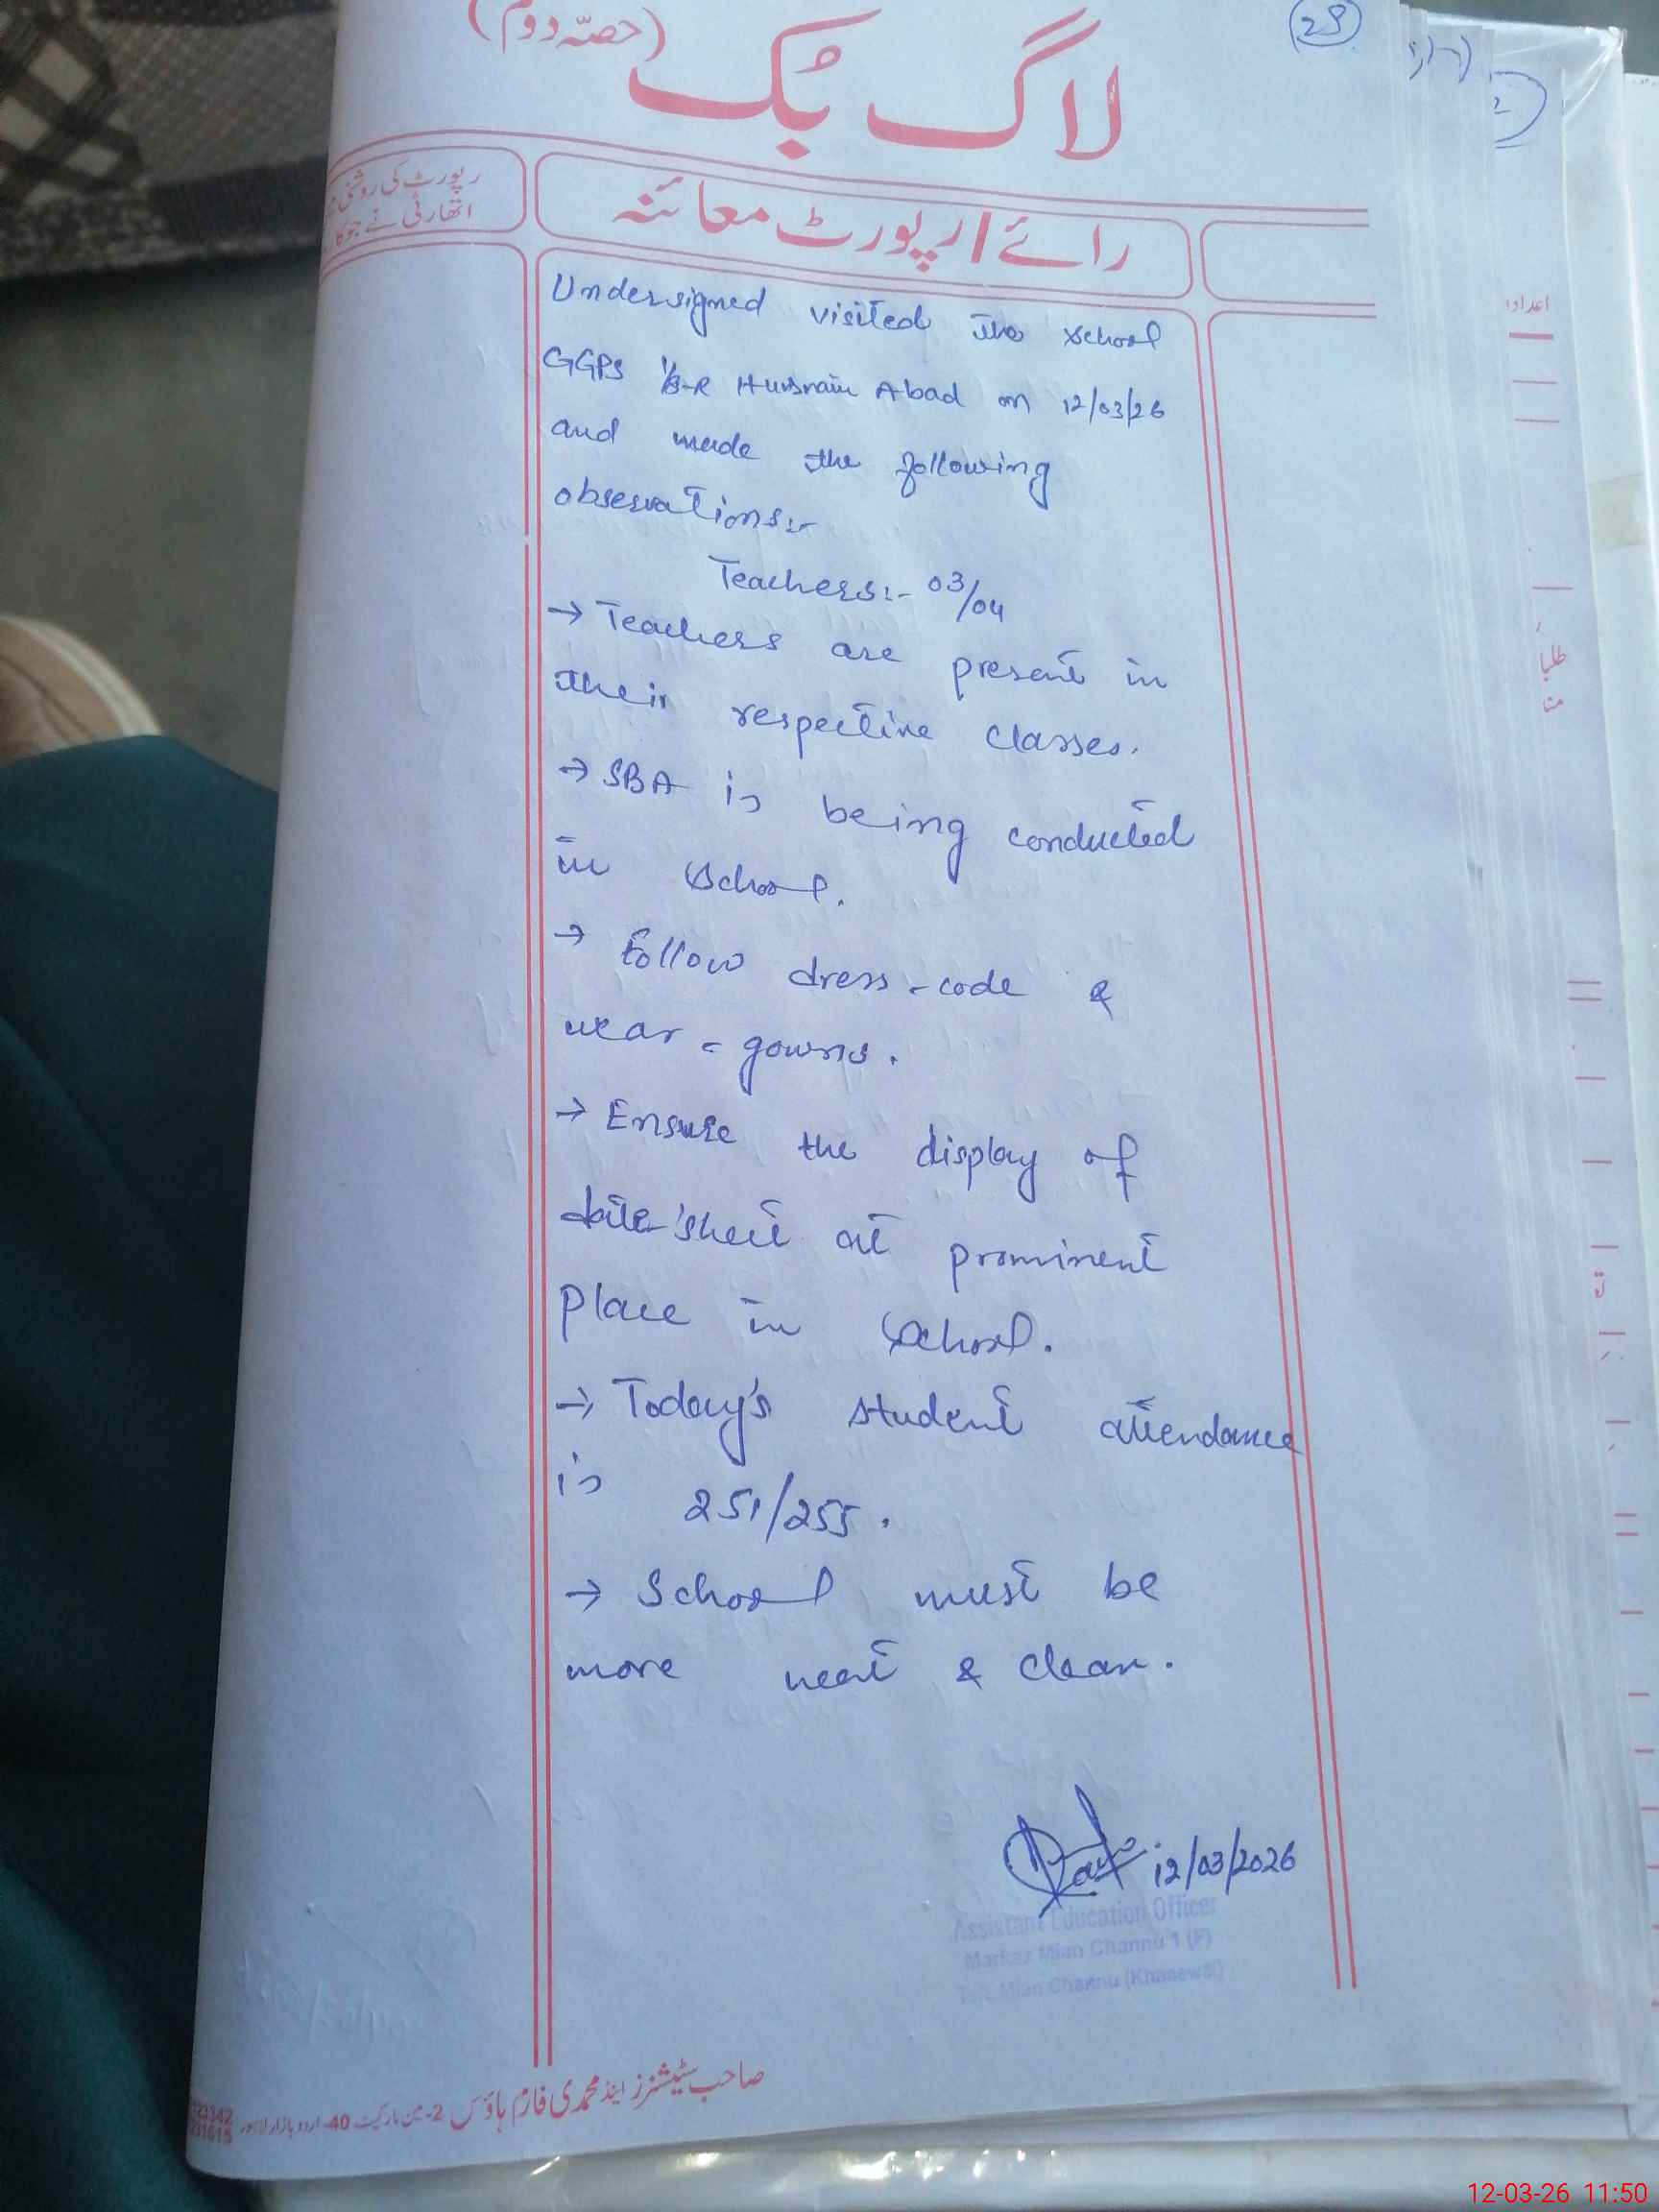 (حصّہ دوم)
لاگ بُک
28
رپورٹ کی روشنی
اتھارٹی نے جو
رائے / رپورٹ معائنہ
Undersigned visited the school
GGPS 1/8-R Hussnain Abad on 12/03/26
and made the following
observations:-
Teachers:- 03/04
→ Teachers are present in
their respective classes.
→ SBA is being conducted
in school.
→ Follow dress-code &
wear = gowns.
→ Ensure the display of
date sheet at prominent
place in school.
→ Today's student attendance
is 251/255.
→ School must be
more neat & clean.
12/03/2026
Assistant Education Officer
Markaz Mian Channu 1 (F)
Teh. Mian Channu (Khanewal)
صاحب سٹیشنرز اینڈ محمدی فارم ہاؤس 2-مین مارکیٹ 40-اردو بازار لاہور
اعداد
طلبا
12-03-26 11:50